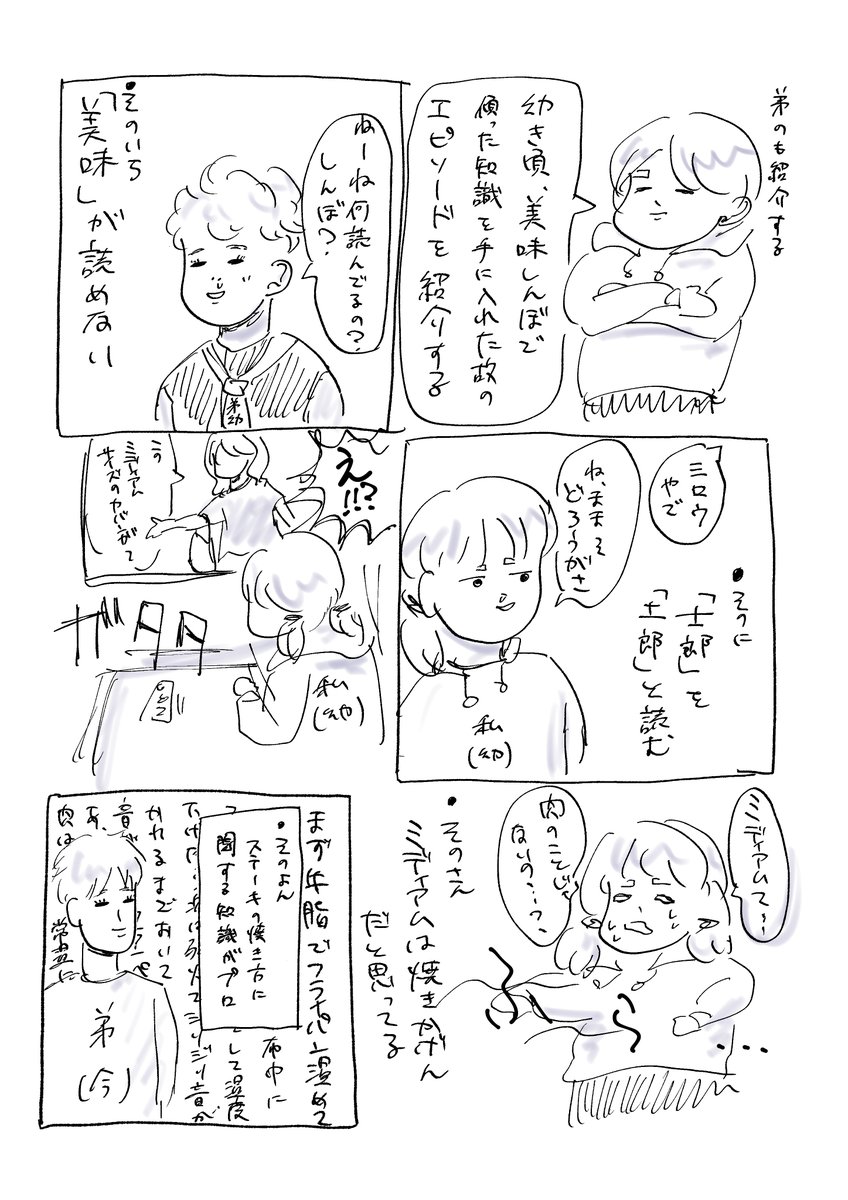 弟のも紹介する
幼き頃、美味しんぼで
偏った知識を手に入れた故の
エピソードを紹介する
ねーね何読んでるの?
しんぼ?
•そのいち
「美味」が読めない
弟幼
ミロウ
やで
ね、ままえ
どろーうがさ
•そのに
「士郎」を
「土郎」と読む
私
(幼)
え!!?
この
ミディアム
サイズのカバンが〜
ガタタ
私
(幼)
ミディアムて…
肉のことじゃ
ないの…?
ふ
ら
…
•そのさん
ミディアムは焼きかげん
だと思ってる
まず牛脂でフライパン温めて
•そのよん
ステーキの焼き方に
関する知識がプロ
かれるまでおいて
常温に
肉は
弟
(今)